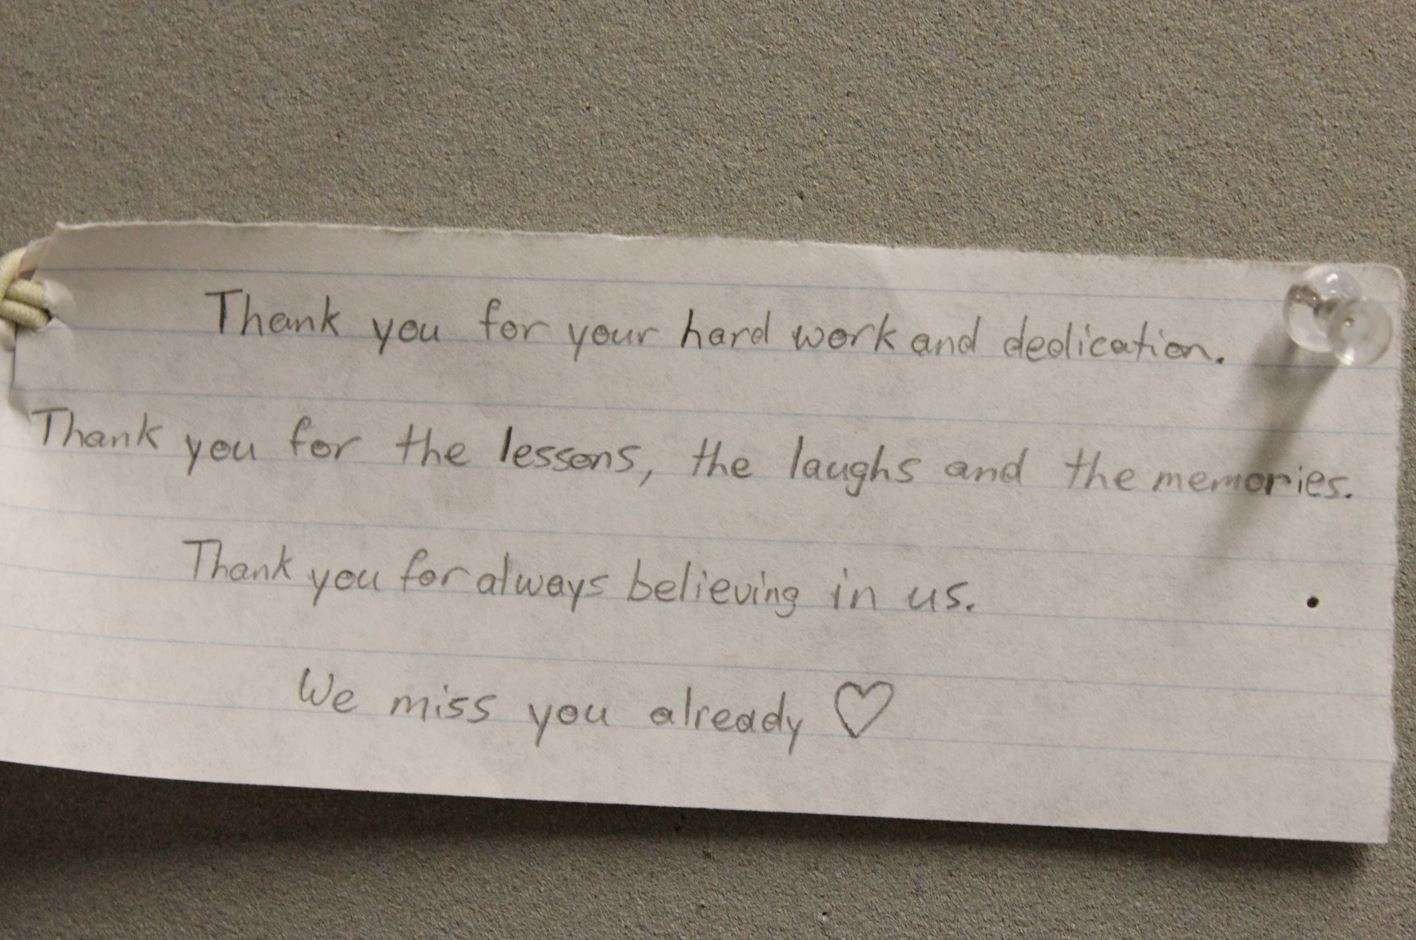 Thank you for your hard work and dedication.
Thank you for the lessons, the laughs and the memories.
Thank you for always believing in us.
We miss you already ♡